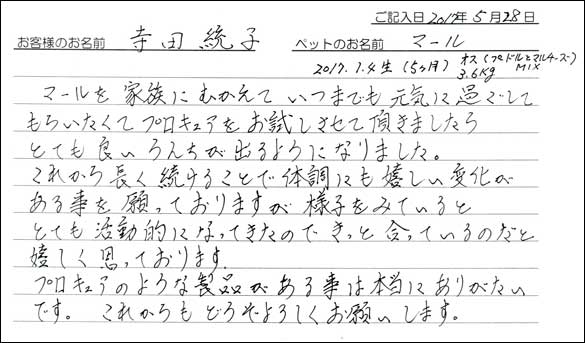 ご記入日 2017年 5月 28日
お客様のお名前 寺田 統子 ペットのお名前 マール
2017.1.4生 (5ヶ月) オス (プードルとマルチーズMIX) 3.6kg
マールを 家族に むかえて いつまでも 元気に 過ごして
もらいたくて プロキュアを お試しさせて頂きましたら
とても 良い うんちが 出るようになりました。
これから 長く 続けることで 体調にも 嬉しい 変化が
ある事を 願っておりますが 様子をみていると
とても 活動的に なってきたので きっと 合っているのだと
嬉しく 思っております。
プロキュアのような 製品が ある事は 本当に ありがたい
です。 これからも どうぞよろしくお願いします。